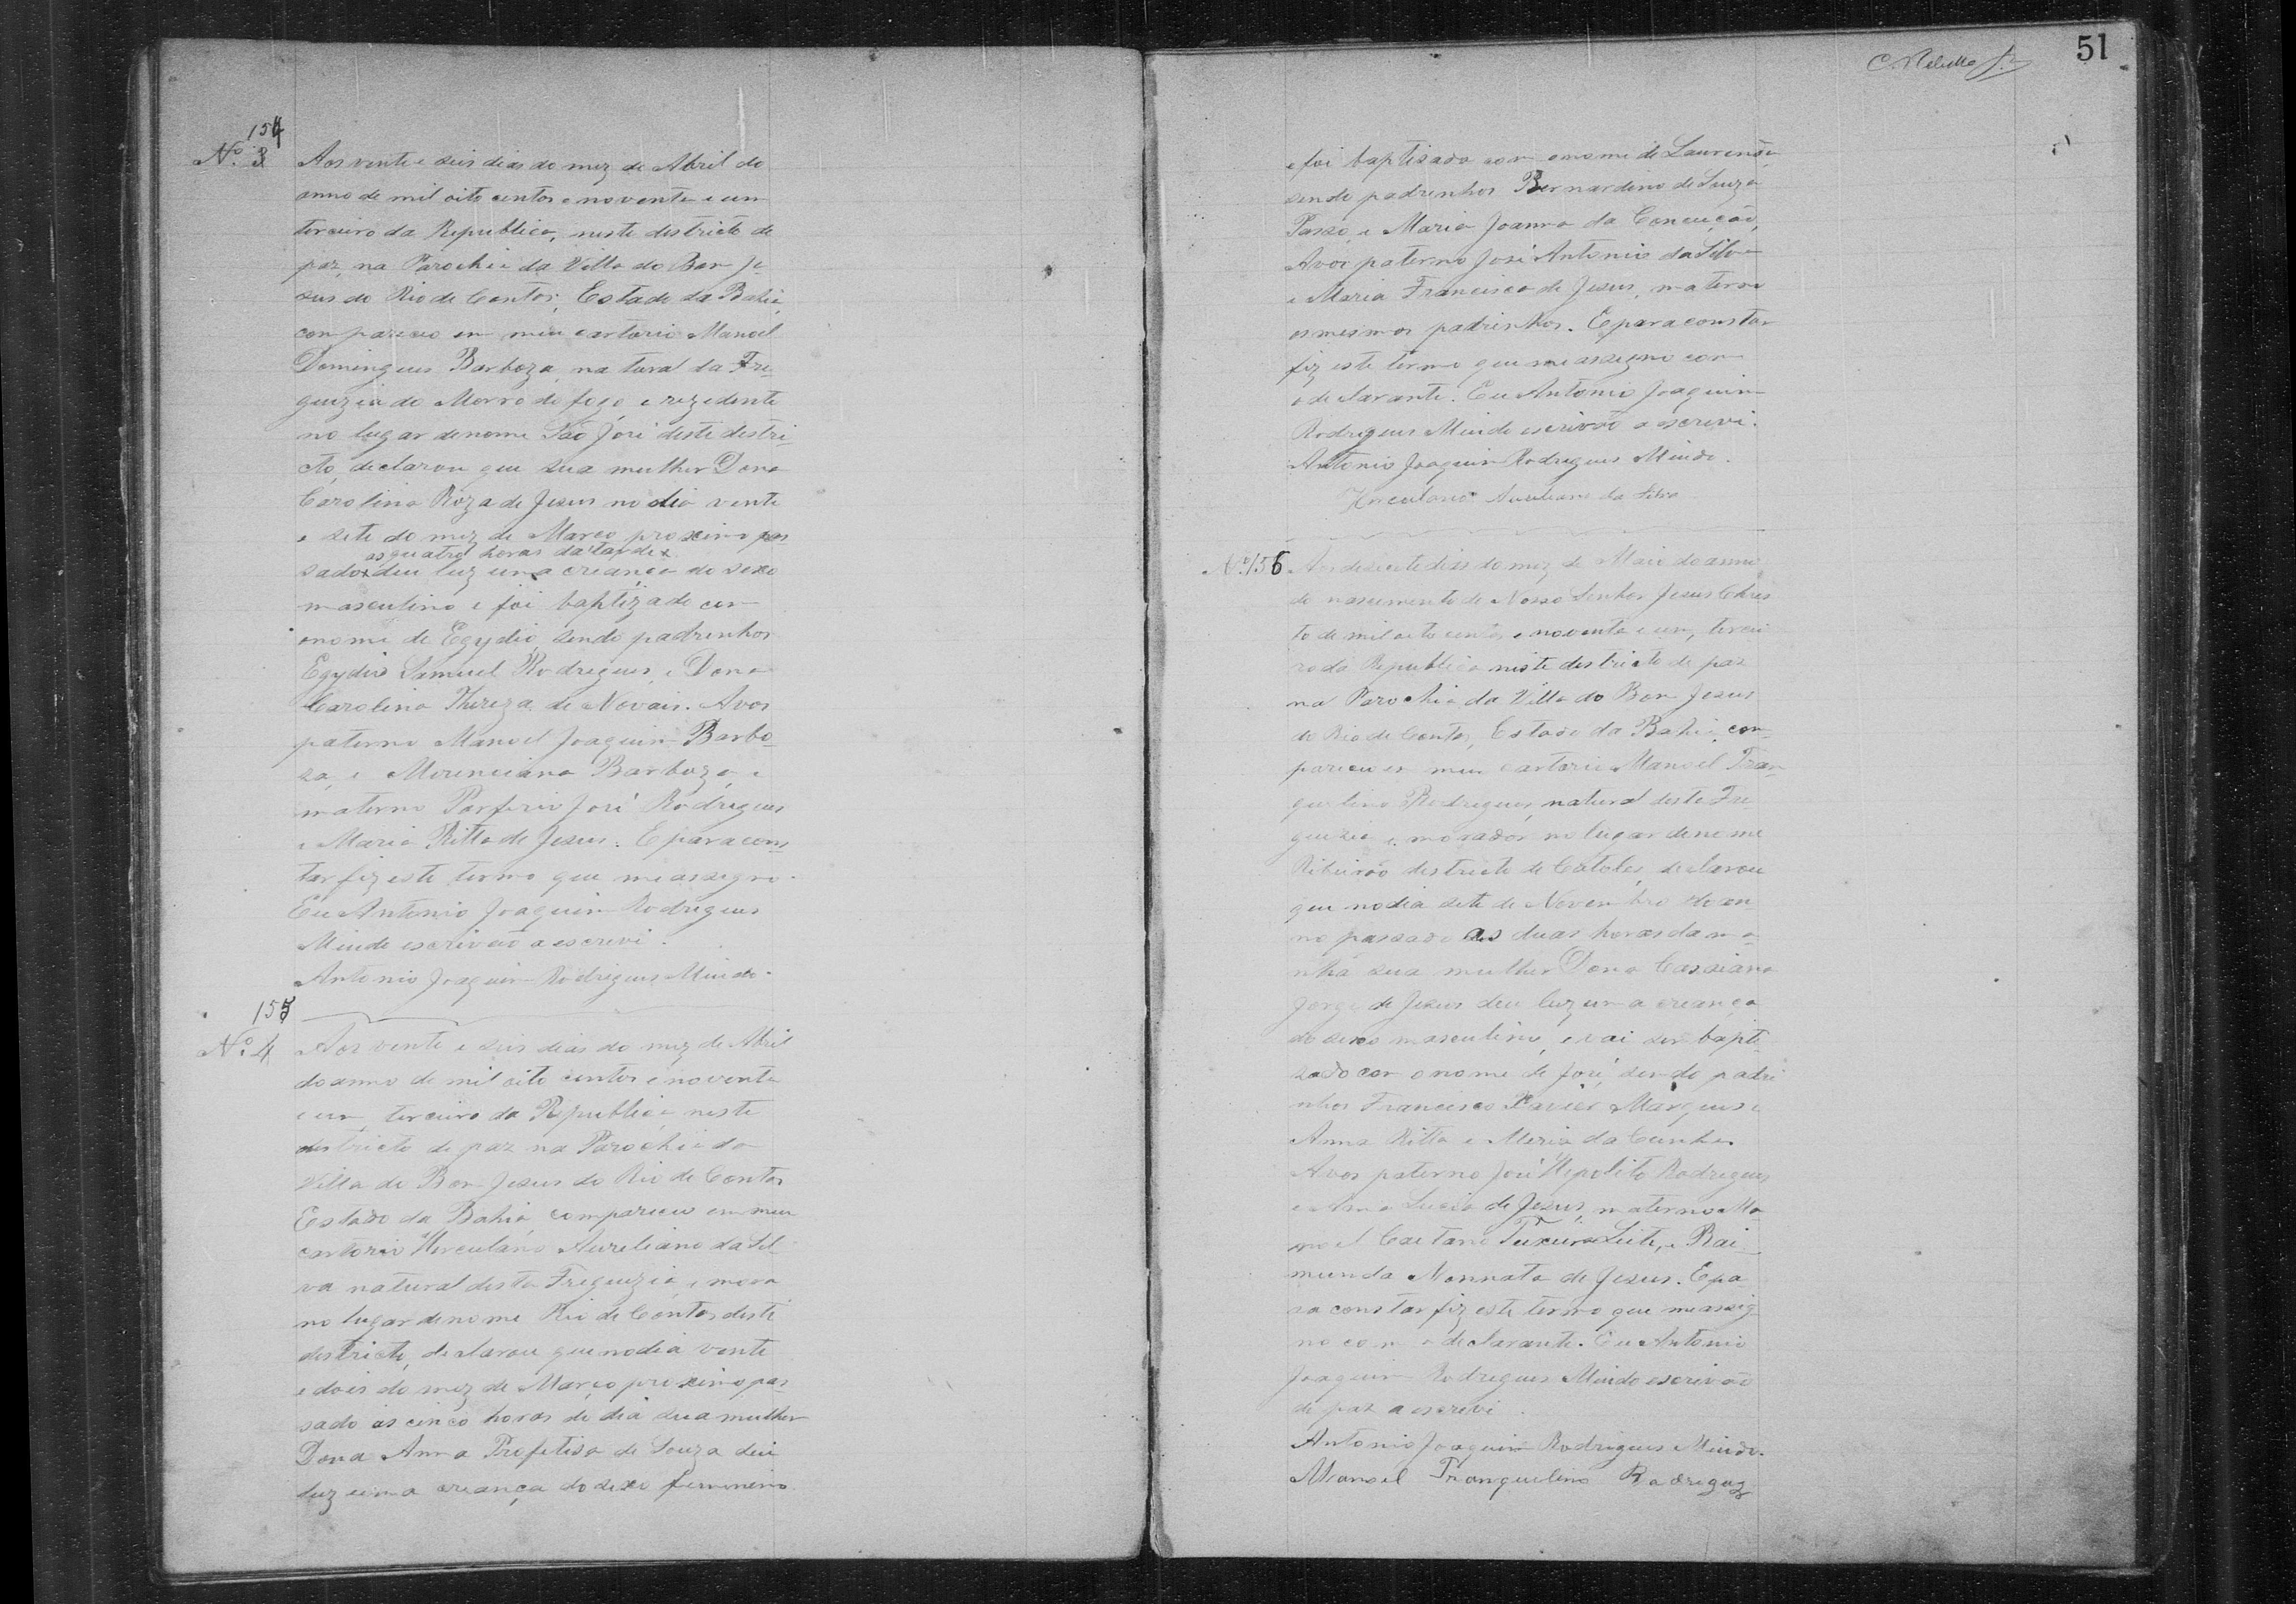 154
Nº 3
Aos vente e seis dias do mez de Abril do
anno de mil oito centos e noventa e um
terceiro da Republica, neste destricto de
paz na Parochia da Villa do Bom Je
sus do Rio de Contos, Estado da Bahia,
compareceo em meu cartorio Manoel
Domingues Barboza, natural da Fre
guezia do Morro do fogo, e rezedente
no lugar denome São José deste destri
cto, declarou que sua mulher Dona
Carolina Roza de Jesus no dia vente
e sete do mez de Março proximo pas
as quatro horas da tarde x
sado x deu luz uma creança do sexo
masculino e foi baptizado com
onome de Egydio, sendo padrinhos
Egydio Samuel Rodrigues, e Dona
Carolina Thereza de Novais. Avos
paterno Manoel Joaquim Barbo
za, e Merenciana Barboza, e
materno Porferio José Rodrigues
e Maria Ritta de Jesus. E para cons
tar fiz este termo que me assegno.
Eu Antonio Joaquim Rodrigues
Mindo escrivão a escrevi.
Antonio Joaquim Rodrigues Mindo.
155
Nº 4
Aos vente e seis dias do mez de Abril
do anno de mil oito centos e noventa
e um, terceiro da Republica, neste
destricto de paz na Parochia da
Villa do Bom Jesus do Rio de Contos
Estado da Bahia, compareceu em meu
cartorio Herculano Aureliano da Sil
va natural desta Freguezia, e mora
no lugar denome Rio de Contos deste
destricto, declarou que no dia vente
e dois do mez de Março proximo pas
sado as cinco horas do dia sua mulher
Dona Anna Profetisa de Souza deu
luz uma creança do sexo femenino
51
e foi baptisado com onome de
sendo padrinhos Bernardino de Souza
Passo, e Maria Joanna da Conceição,
Avos paterno José Antonio da Silva
e Maria Francisca de Jesus, materno
os mesmos padrinhos. E para constar
fiz este termo que me assegno com
o declarante. Eu Antonio Joaquim
Rodrigues Mindo escrivão a escrevi.
Antonio Joaquim Rodrigues Mindo.
Herculano Aureliano da Silva
Nº 156
Aos desecete dias do mez de Maio do anno
do nascimento de Nosso Senhor Jesus Chris
to de mil oito centos e noventa e um, tercei
ro da Republica neste destricto de paz
na Parochia da Villa do Bom Jesus
do Rio de Contos, Estado da Bahia, com
pareceu em meu cartorio Manoel Tran
quelino Rodrigues, natural desta Fre
guezia e morador no lugar denome
Ribeirão destricto de Catoles, declarou
que no dia sete de Novembro do an
no passado as duas horas da ma
nhã sua mulher Dona Cassiana
Jorge de Jesus deu luz uma creança
do sexo masculino, e vai ser bapti
zado com o nome de José, sendo padri
nhos Francisco Xavier Marques e
Anna Ritta e Maria da Cunha.
Avos paterno José Hepolito Rodrigues
e Anna Lucia de Jesus, materno Ma
noel Caetano Teixeira Leite, e Rai
munda Nonnata de Jesus. E pa
ra constar fiz este termo que me assig
no com o declarante. Eu Antonio
Joaquim Rodrigues Mindo escrivão
de paz a escrevi.
Antonio Joaquim Rodrigues Mindo.
Manoel Tranquelino Rodrigues